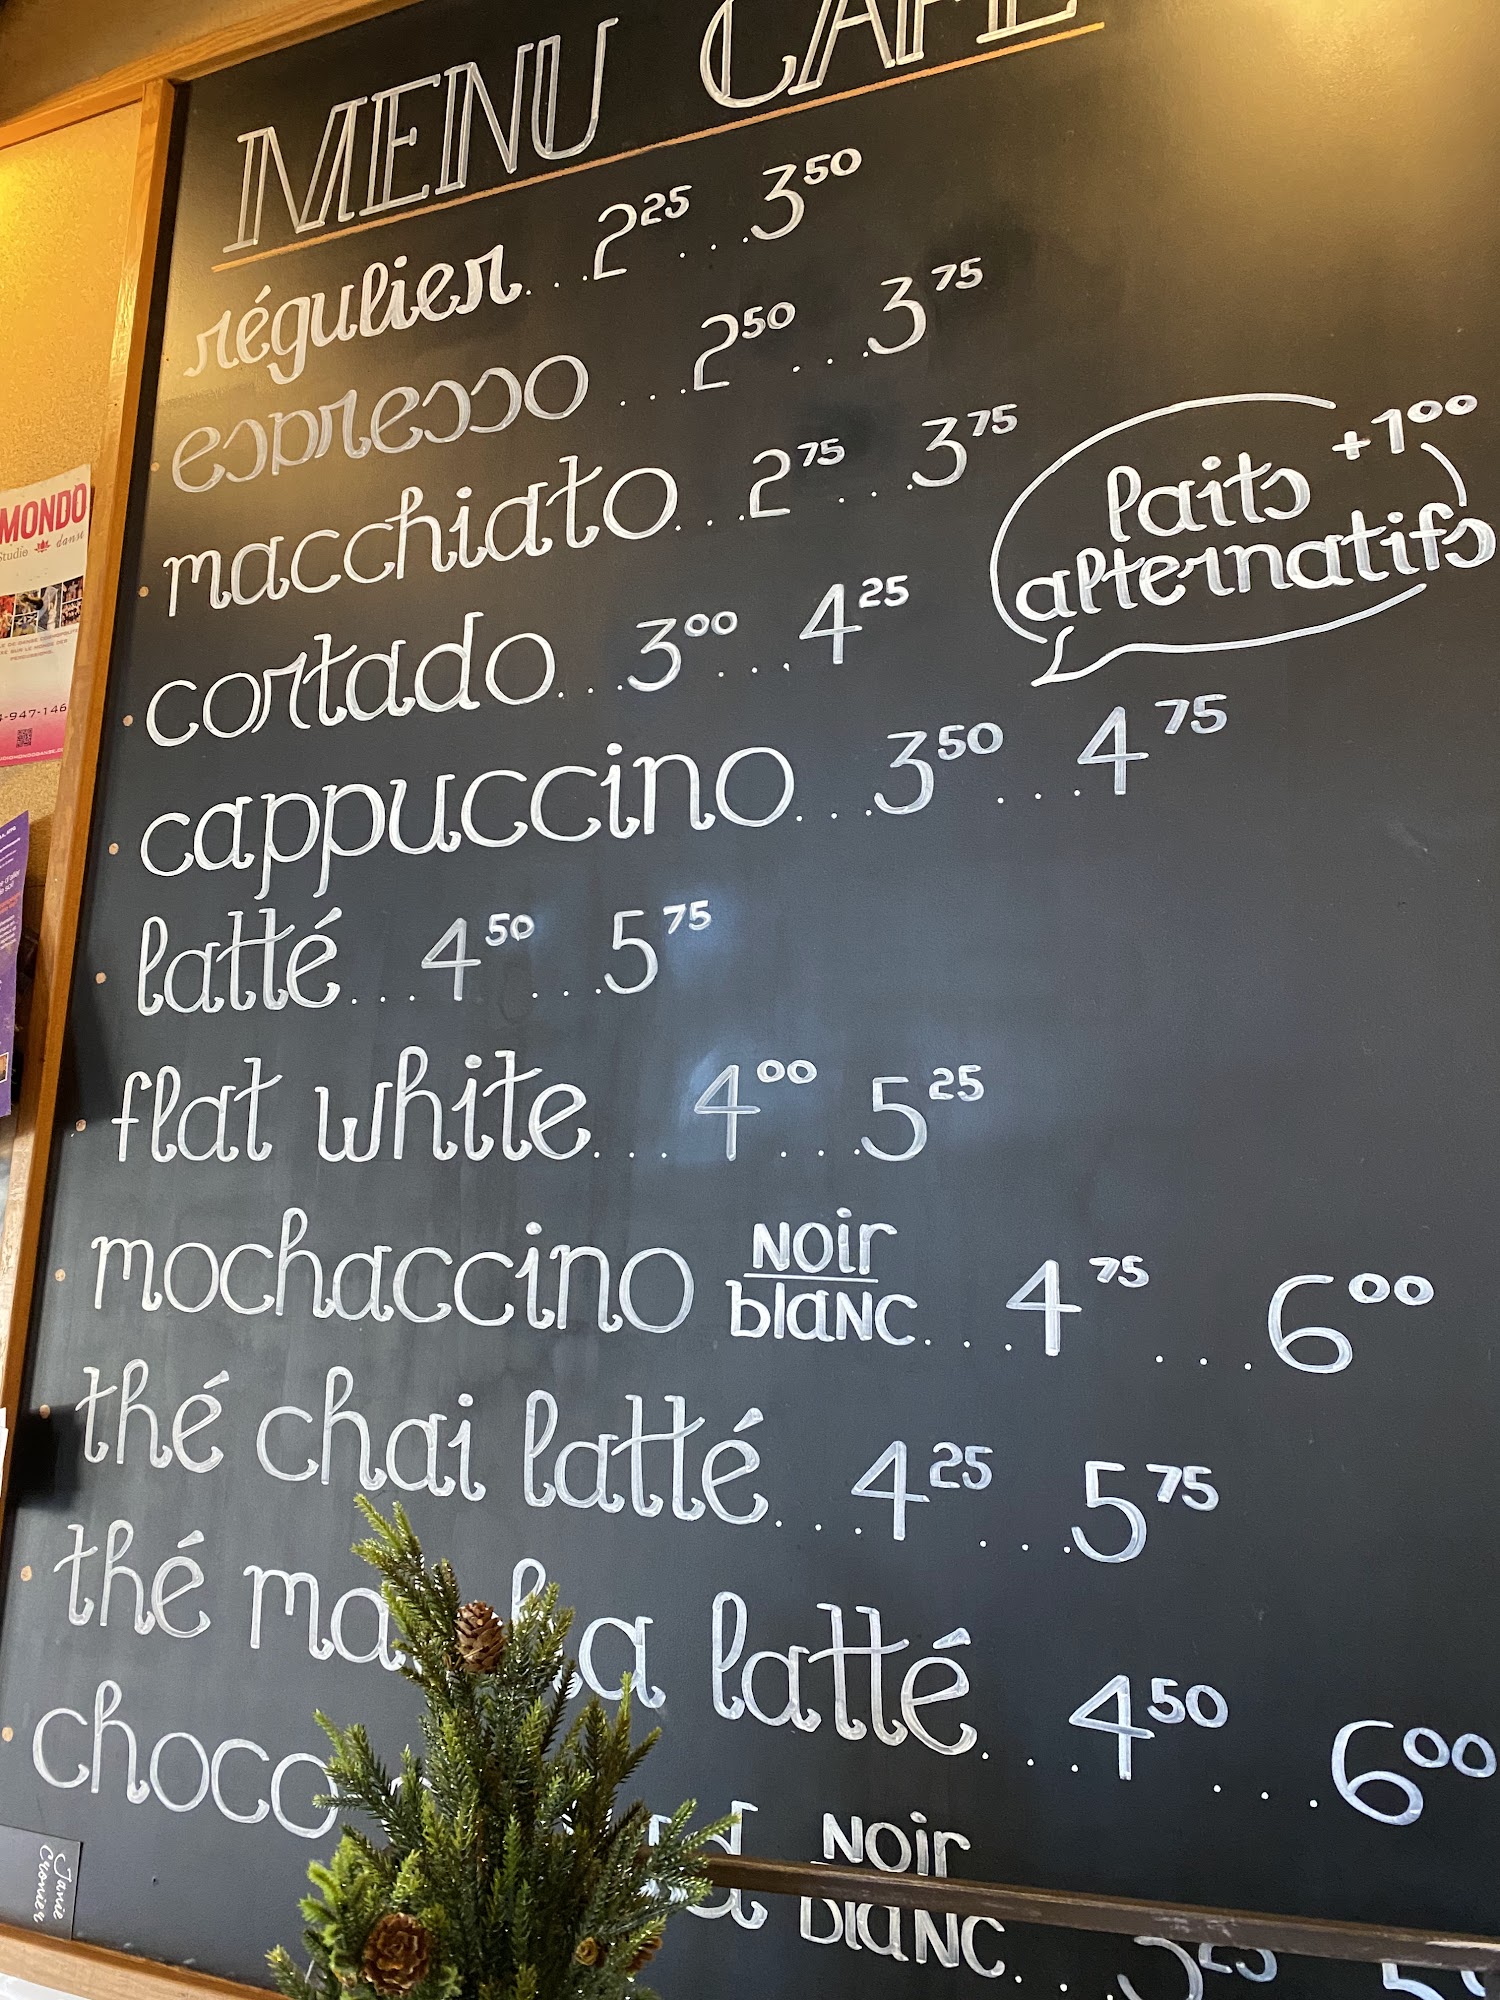 MENU CAFÉ
régulier...2 25...3 50
espresso...2 50...3 75
macchiato...2 75...3 75
laits +1 00
alternatifs
cortado...3 00...4 25
cappuccino...3 50...4 75
latté...4 50...5 75
flat white...4 00...5 25
mochaccino noir blanc...4 75...6 00
thé chai latté...4 25...5 75
thé latté...4 50...6 00
noir
blanc...
MONDO
Studio danse
Janie
Cronier